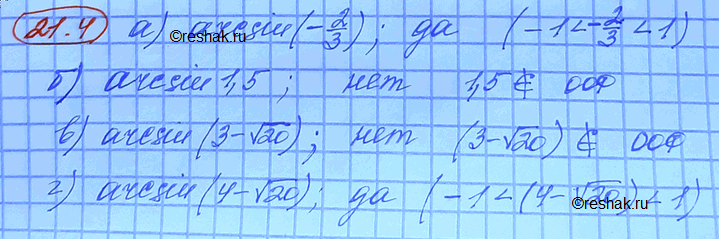 21.4 а) arcsin(-2/3); да (-1<-2/3<1)
©reshak.ru
б) arcsin 1,5; нет 1,5 ∉ ООФ
в) arcsin (3-√20); нет (3-√20) ∉ ООФ
г) arcsin (4-√20); да (-1<(4-√20)<1)
©reshak.ru